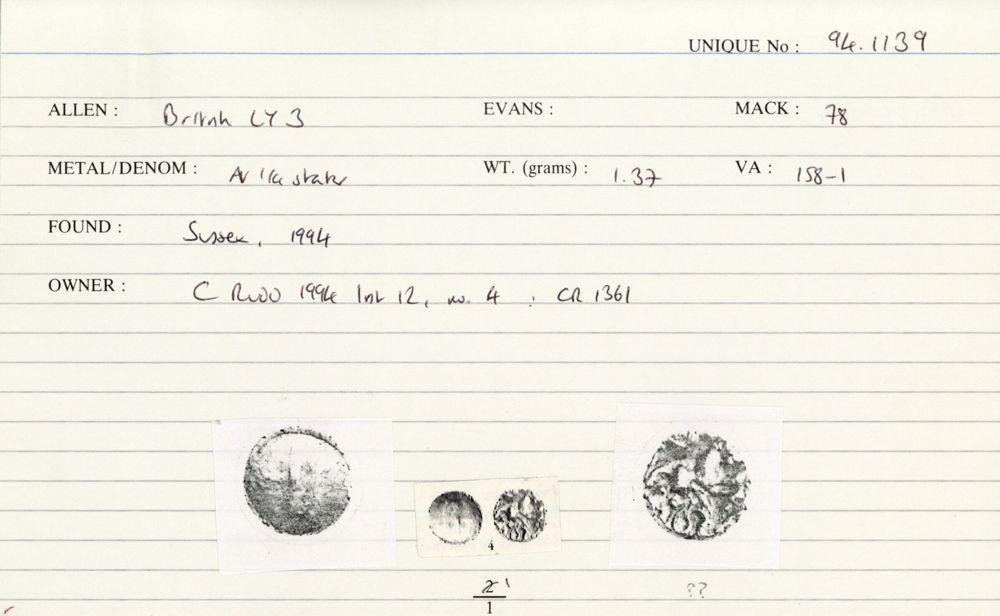 UNIQUE No : 94.1139
ALLEN : British LY 3 EVANS : MACK : 78
METAL/DENOM : AV 1/4 stater WT. (grams) : 1.37 VA : 158-1
FOUND : Sussex, 1994
OWNER : C Rudd 1994 list 12, no. 4 ; CR 1361
4
2 1
1
??